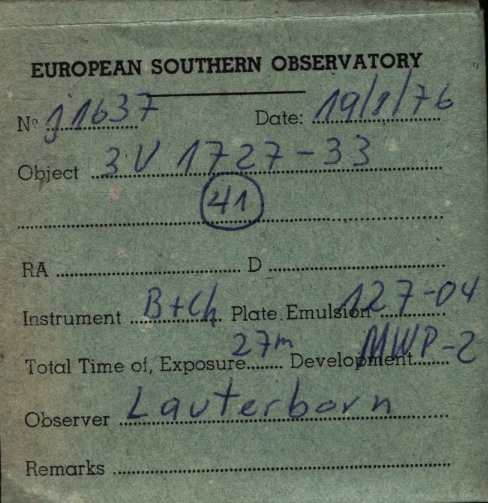 EUROPEAN SOUTHERN OBSERVATORY
Nº j1637 Date: 19/8/76
Object 3U 1727-33
41
RA D
Instrument B+Ch Plate Emulsion 127-04
Total Time of Exposure 27m Development MWP-2
Observer Lauterborn
Remarks